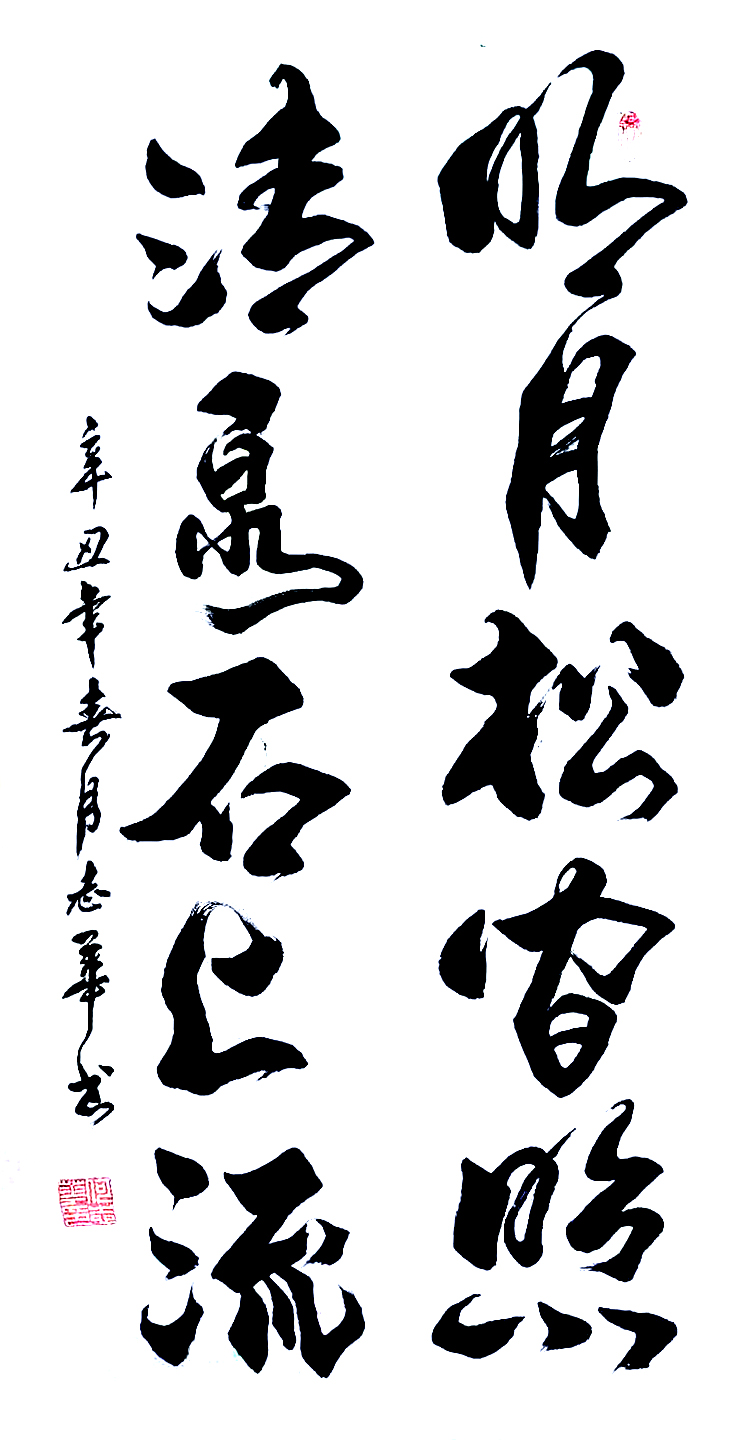 明月松间照
清泉石上流
辛丑年春月志華书